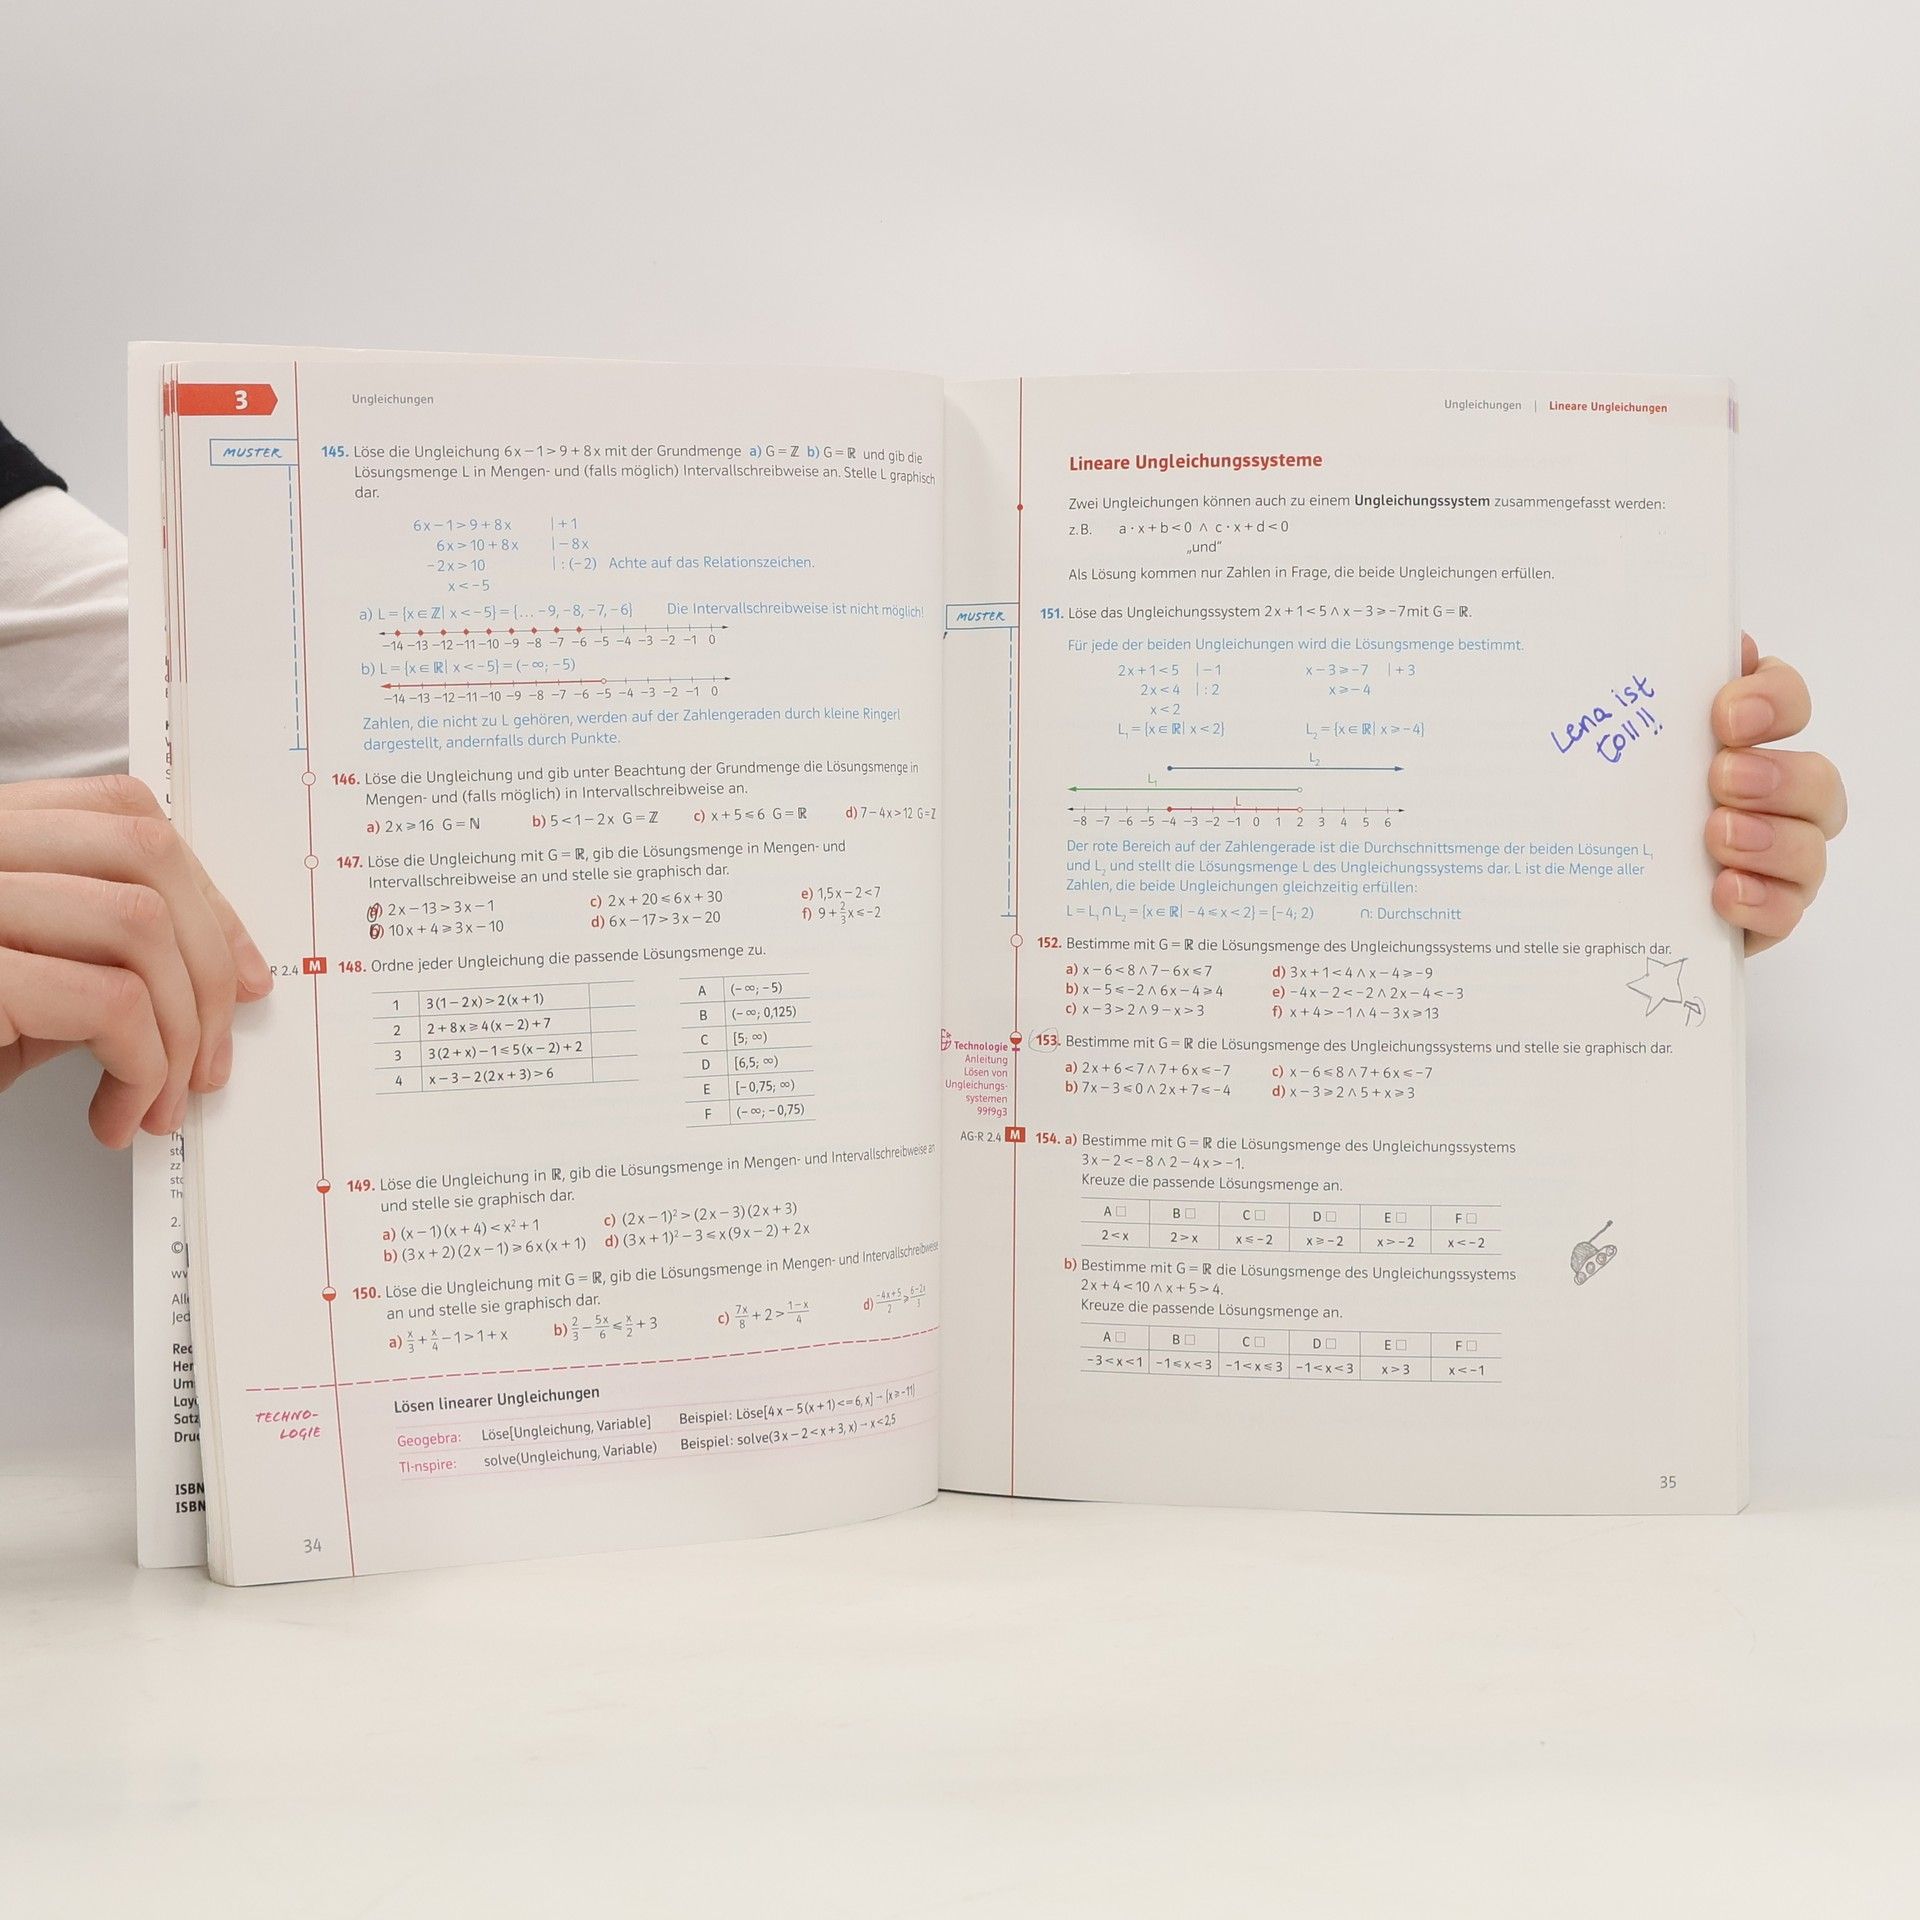 3
Ungleichungen
MUSTER
145. Löse die Ungleichung 6x − 1 > 9 + 8x mit der Grundmenge a) G = ℤ b) G = ℝ und gib die
Lösungsmenge L in Mengen- und (falls möglich) Intervallschreibweise an. Stelle L graphisch
dar.
6x − 1 > 9 + 8x | + 1
6x > 10 + 8x | − 8x
−2x > 10 | : (−2) Achte auf das Relationszeichen.
x < −5
a) L = {x ∈ ℤ| x < −5} = {... −9, −8, −7, −6} Die Intervallschreibweise ist nicht möglich!
−14 −13 −12 −11 −10 −9 −8 −7 −6 −5 −4 −3 −2 −1 0
b) L = {x ∈ ℝ| x < −5} = (−∞; −5)
−14 −13 −12 −11 −10 −9 −8 −7 −6 −5 −4 −3 −2 −1 0
Zahlen, die nicht zu L gehören, werden auf der Zahlengeraden durch kleine Ringerl
dargestellt, andernfalls durch Punkte.
146. Löse die Ungleichung und gib unter Beachtung der Grundmenge die Lösungsmenge in
Mengen- und (falls möglich) in Intervallschreibweise an.
a) 2x ⩾ 16 G = ℕ b) 5 < 1 − 2x G = ℤ c) x + 5 ⩽ 6 G = ℝ d) 7 − 4x > 12 G = ℤ
147. Löse die Ungleichung mit G = ℝ, gib die Lösungsmenge in Mengen- und
Intervallschreibweise an und stelle sie graphisch dar.
a) 2x − 13 > 3x − 1 c) 2x + 20 ⩽ 6x + 30 e) 1,5x − 2 < 7
b) 10x + 4 ⩾ 3x − 10 d) 6x − 17 > 3x − 20 f) 9 + 2/3 x ⩽ −2
R 2.4 M 148. Ordne jeder Ungleichung die passende Lösungsmenge zu.
1 3(1 − 2x) > 2(x + 1)
2 2 + 8x ⩾ 4(x − 2) + 7
3 3(2 + x) − 1 ⩽ 5(x − 2) + 2
4 x − 3 − 2(2x + 3) > 6
A (−∞; −5)
B (−∞; 0,125)
C [5; ∞)
D [6,5; ∞)
E [−0,75; ∞)
F (−∞; −0,75)
149. Löse die Ungleichung in ℝ, gib die Lösungsmenge in Mengen- und Intervallschreibweise an
und stelle sie graphisch dar.
a) (x − 1)(x + 4) < x² + 1 c) (2x − 1)² > (2x − 3)(2x + 3)
b) (3x + 2)(2x − 1) ⩾ 6x(x + 1) d) (3x + 1)² − 3 ⩽ x(9x − 2) + 2x
150. Löse die Ungleichung mit G = ℝ, gib die Lösungsmenge in Mengen- und Intervallschreibweise
an und stelle sie graphisch dar.
a) x/3 + x/4 − 1 > 1 + x b) 2/3 − 5x/6 ⩽ x/2 + 3 c) 7x/8 + 2 > 1−x/4 d) −4x+5/2 ⩾ 6−2x/3
TECHNO-
LOGIE
Lösen linearer Ungleichungen
Geogebra: Löse[Ungleichung, Variable] Beispiel: Löse[4x − 5(x + 1) <= 6, x] → {x ⩾ −11}
TI-nspire: solve(Ungleichung, Variable) Beispiel: solve(3x − 2 < x + 3, x) → x < 2,5
34
Th
2.
©
Alle
Jed
Red
Her
Um
Layo
Satz
Dru
ISBN
ISBN
Ungleichungen | Lineare Ungleichungen
Lineare Ungleichungssysteme
Zwei Ungleichungen können auch zu einem Ungleichungssystem zusammengefasst werden:
z. B. a · x + b < 0 ∧ c · x + d < 0
„und“
Als Lösung kommen nur Zahlen in Frage, die beide Ungleichungen erfüllen.
MUSTER
151. Löse das Ungleichungssystem 2x + 1 < 5 ∧ x − 3 ⩾ −7 mit G = ℝ.
Für jede der beiden Ungleichungen wird die Lösungsmenge bestimmt.
2x + 1 < 5 | − 1 x − 3 ⩾ −7 | + 3
2x < 4 | : 2 x ⩾ −4
x < 2
L₁ = {x ∈ ℝ| x < 2} L₂ = {x ∈ ℝ| x ⩾ −4}
Lena ist
toll!!
L₂
L₁
L
−8 −7 −6 −5 −4 −3 −2 −1 0 1 2 3 4 5 6
Der rote Bereich auf der Zahlengerade ist die Durchschnittsmenge der beiden Lösungen L₁
und L₂ und stellt die Lösungsmenge L des Ungleichungssystems dar. L ist die Menge aller
Zahlen, die beide Ungleichungen gleichzeitig erfüllen:
L = L₁ ∩ L₂ = {x ∈ ℝ| −4 ⩽ x < 2} = [−4; 2) ∩: Durchschnitt
152. Bestimme mit G = ℝ die Lösungsmenge des Ungleichungssystems und stelle sie graphisch dar.
a) x − 6 < 8 ∧ 7 − 6x ⩽ 7 d) 3x + 1 < 4 ∧ x − 4 ⩾ −9
b) x − 5 ⩽ −2 ∧ 6x − 4 ⩾ 4 e) −4x − 2 < −2 ∧ 2x − 4 < −3
c) x − 3 > 2 ∧ 9 − x > 3 f) x + 4 > −1 ∧ 4 − 3x ⩾ 13
Technologie
Anleitung
Lösen von
Ungleichungs-
systemen
99f9g3
153. Bestimme mit G = ℝ die Lösungsmenge des Ungleichungssystems und stelle sie graphisch dar.
a) 2x + 6 < 7 ∧ 7 + 6x ⩽ −7 c) x − 6 ⩽ 8 ∧ 7 + 6x ⩽ −7
b) 7x − 3 ⩽ 0 ∧ 2x + 7 ⩽ −4 d) x − 3 ⩾ 2 ∧ 5 + x ⩾ 3
AG-R 2.4 M 154. a) Bestimme mit G = ℝ die Lösungsmenge des Ungleichungssystems
3x − 2 < −8 ∧ 2 − 4x > −1.
Kreuze die passende Lösungsmenge an.
A □ B □ C □ D □ E □ F □
2 < x 2 > x x ⩽ −2 x ⩾ −2 x > −2 x < −2
b) Bestimme mit G = ℝ die Lösungsmenge des Ungleichungssystems
2x + 4 < 10 ∧ x + 5 > 4.
Kreuze die passende Lösungsmenge an.
A □ B □ C □ D □ E □ F □
−3 < x < 1 −1 ⩽ x < 3 −1 < x ⩽ 3 −1 < x < 3 x > 3 x < −1
35